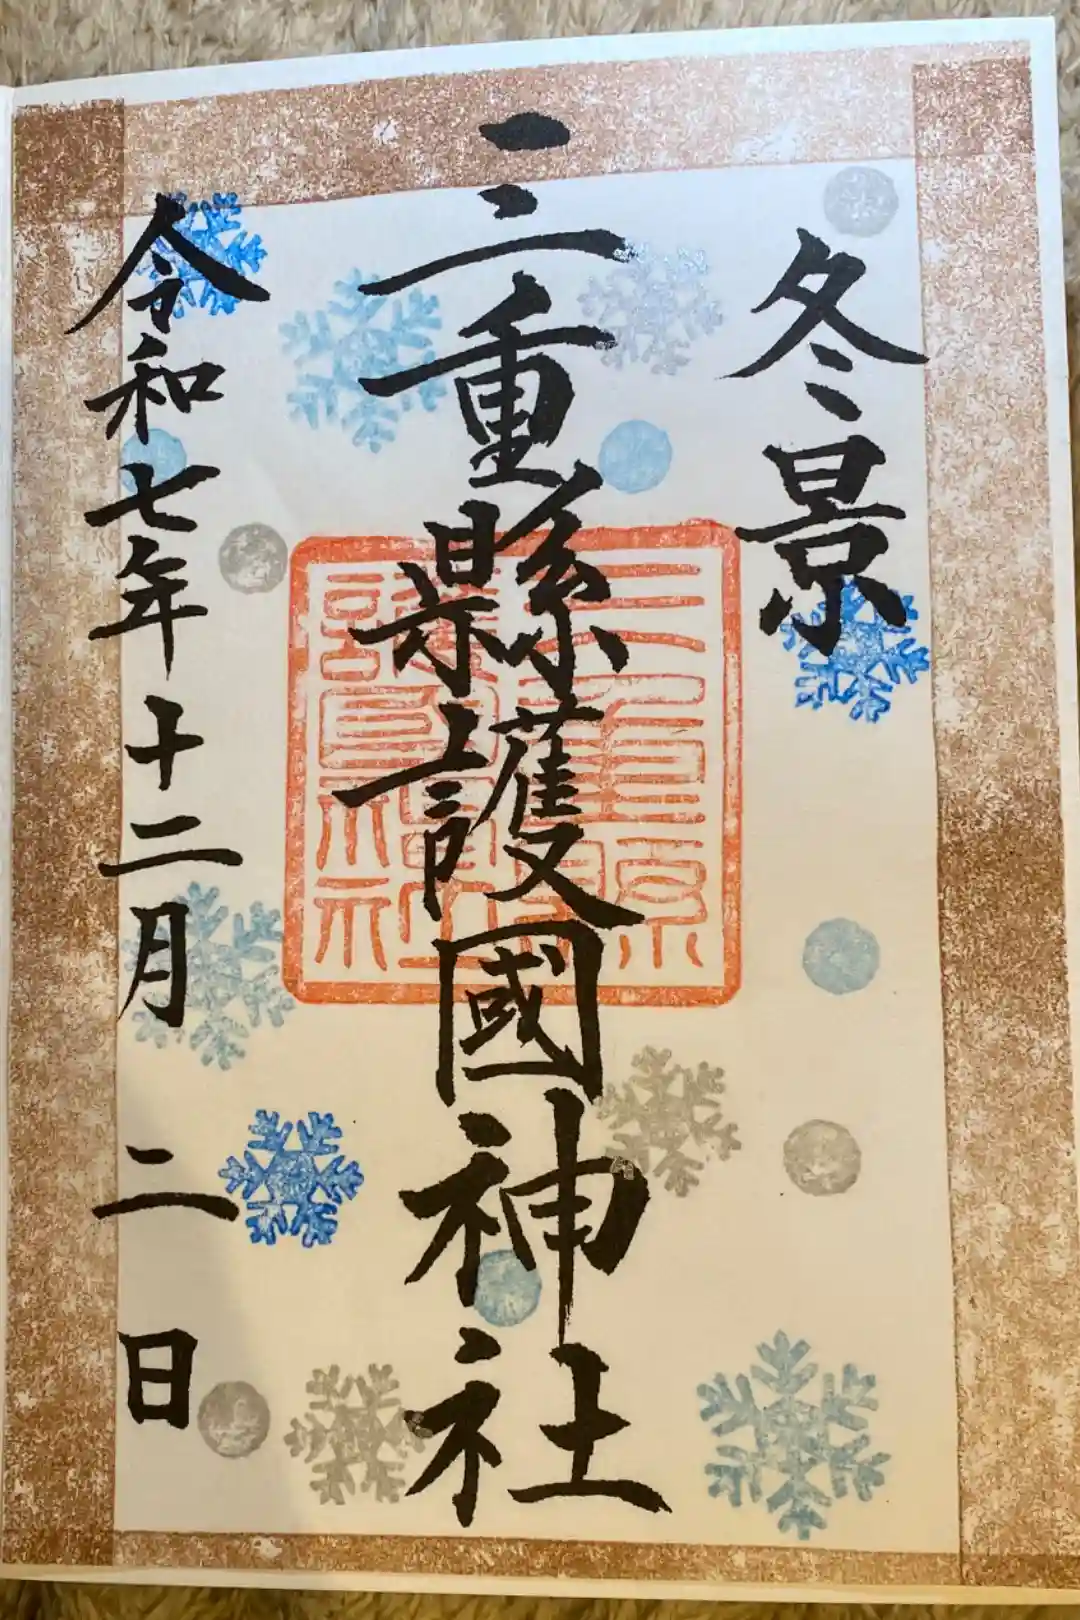 冬景
三重縣護國神社
三重縣護國神社
令和七年十二月二日